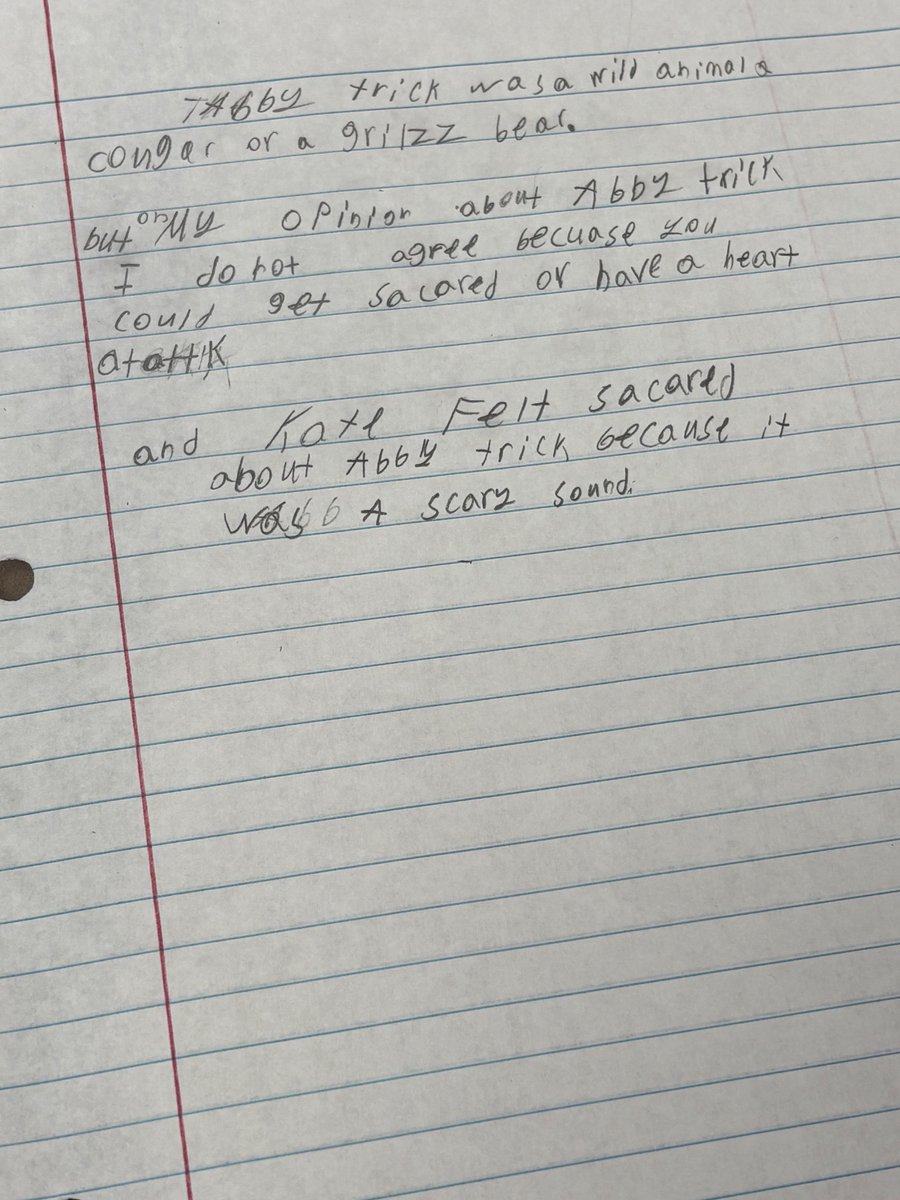 TAbby trick was a wild animal a
cougar or a grilzz bear.
but on My opinion about Abby trick
I do not agree becuase you
could get sacared or have a heart
at
and Kate Felt sacared
about Abby trick because it
was A scary sound.